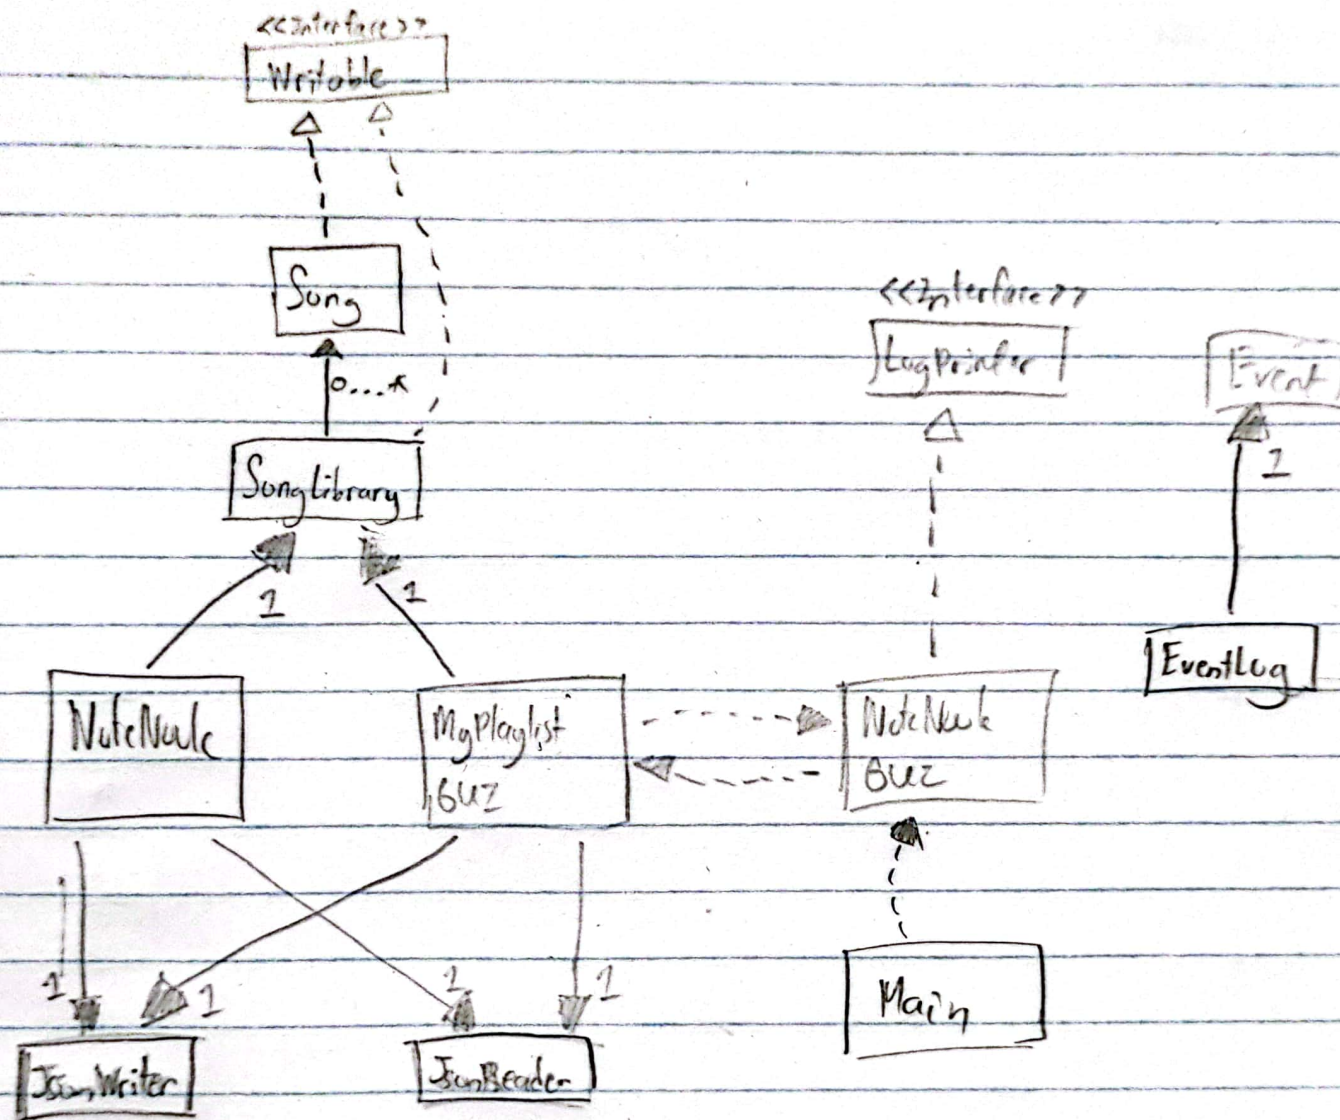 <<Interface>>
Writable
Song
0....*
<<Interface>>
LogPrinter
Event
1
SongLibrary
1
1
EventLog
NoteNook
MyPlaylist
GUI
NoteNook
GUI
1
1
1
1
JsonWriter
JsonReader
Main